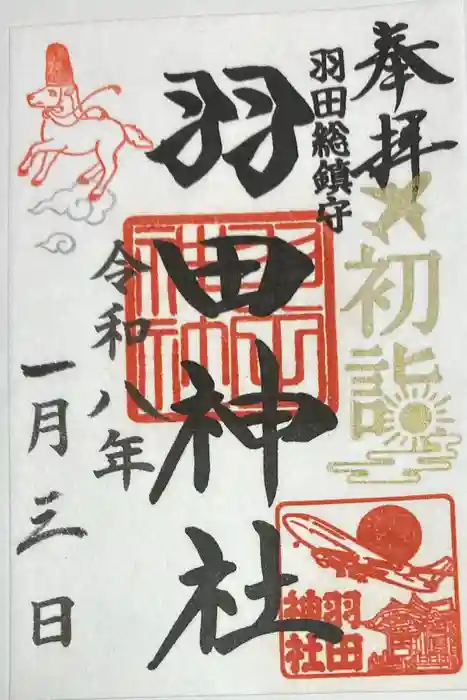 奉拝
初詣
羽田総鎮守
羽田神社
羽田神社
令和八年
一月三日
羽田
神社